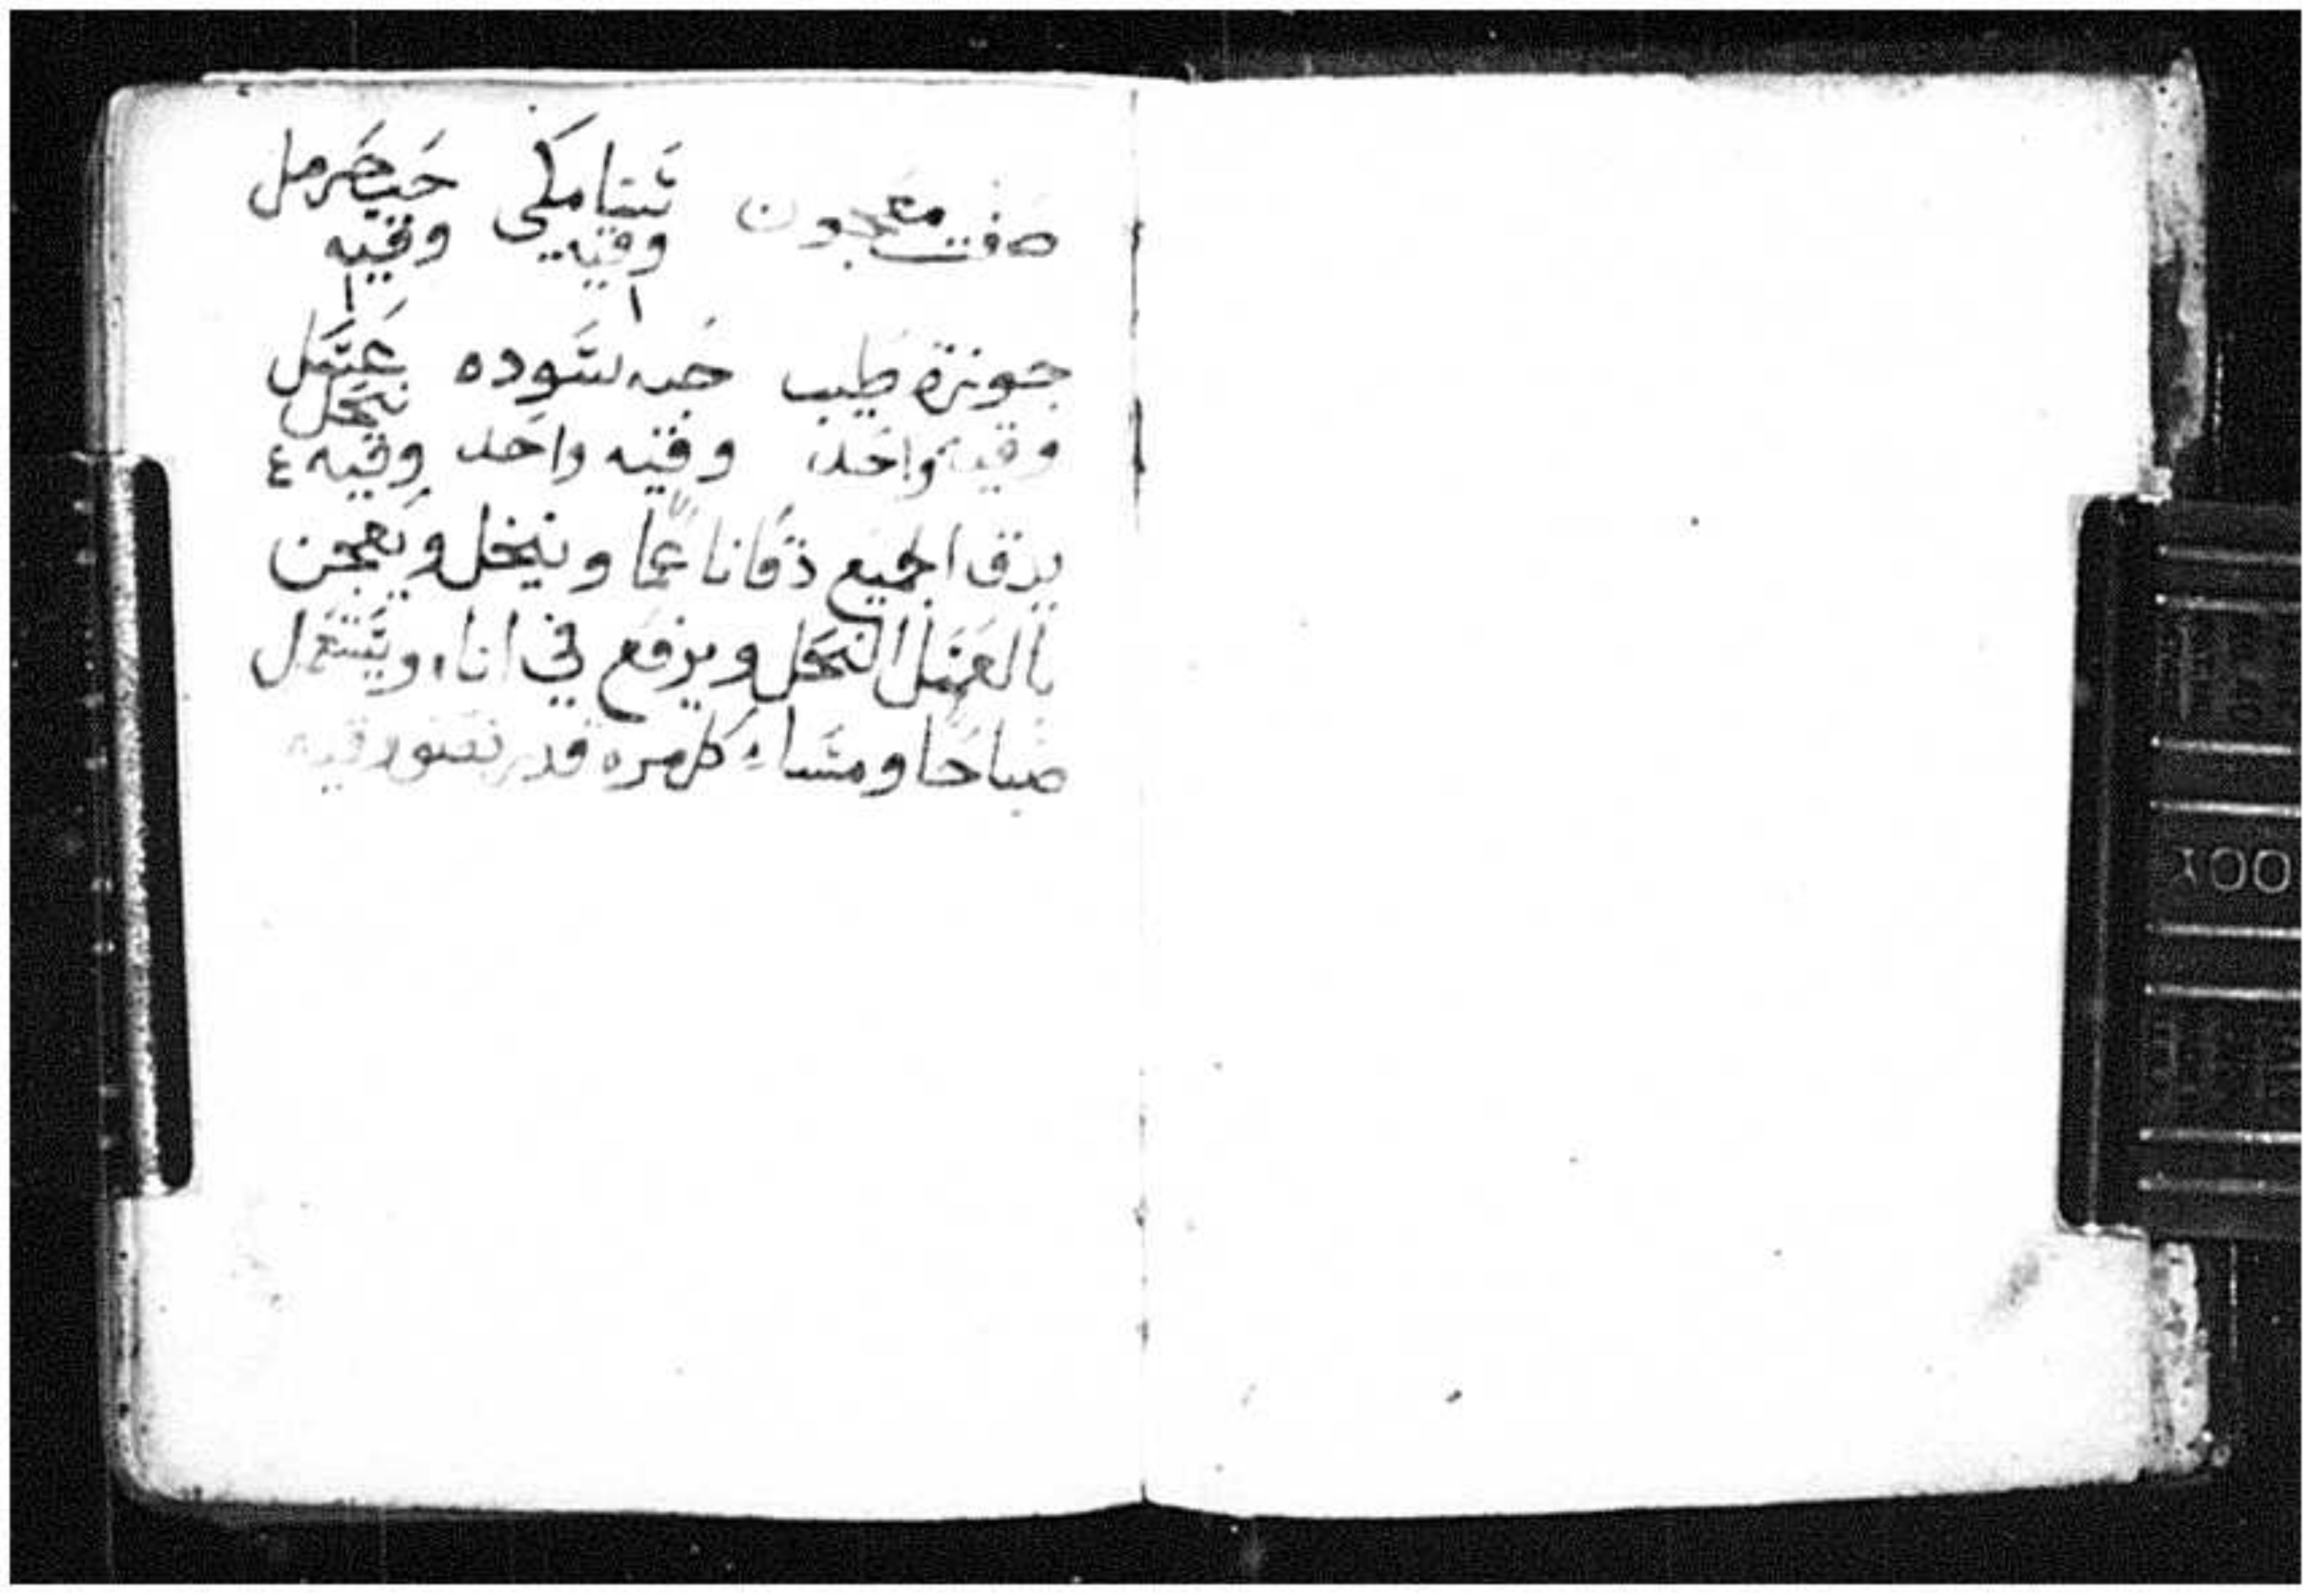 صفت معجون سنا مكي حب حرمل
وقيه وقيه
١ ١
جوزة طيب حبه سوده عسل
نحل
وقيه واحد وقيه واحد وقيه ٤
يدق الجميع دقا ناعما وينخل ويعجن
بالعسل النحل ويرفع في اناء ويستعمل
صباحا ومساء كل مره قدر